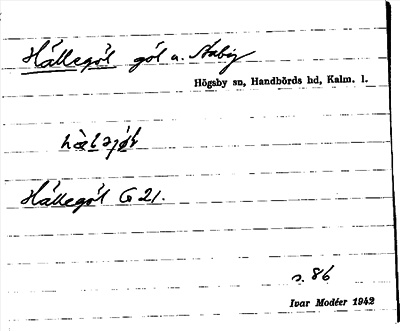 Hållegöl göl u. Staby
Högsby sn, Handbörds hd, Kalm. l.
Hållegöl G 21.
s. 86
Ivar Modéer 1942